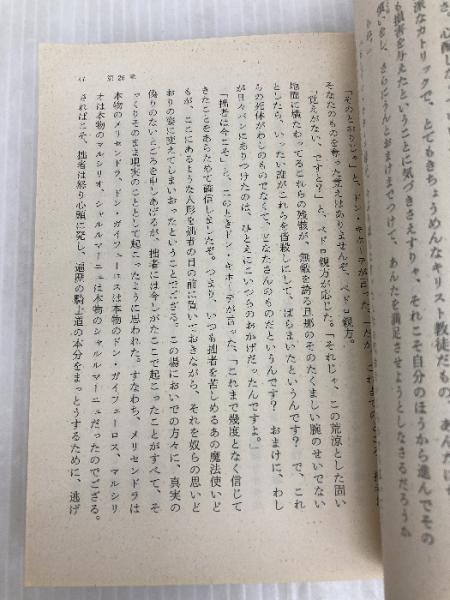 深なカトリックで、とてもきちょうめんなキリスト教徒だもの。あんたに
も損害を与えたということに気づきさえすりゃ、それこそ自分のほうから進んでその
さらにうんとおまけまでつけて、あんたを満足させようとしなさるだろうか
47 第26章
「そのとおりじゃ」と、ドン・キホーテが言った。
そなたのものを奪った覚えはありませんぞ、ペドロ親方。
「覚えがない、ですと?」と、ペドロ親方が応じた。「それじゃ、この荒涼とした固い
地面に横たわってるこれらの残骸が、無敵を誇る旦那のそのたくましい腕のせいでない
としたら、いったい誰がこれらを皆殺しにして、ばらまいたというんです? で、これ
らの死体がわしのものでなくて、どなたさんのものだというんです? おまけに、わし
が日々パンにありつけたのは、ひとえにこいつらのおかげだったんですよ。」
「拙者は今こそ」と、このときドン・キホーテが言った、「これまで幾度となく信じて
きたことをあらためて確信しましたぞ。つまり、いつも拙者を苦しめるあの魔法使いど
もが、ここにあるような人形を拙者の目の前に置いておきながら、それを奴らの思いど
おりの姿に変えてしまいおったということでござる。この場においでの方々に、真実の
偽りのないところを申しあげるが、拙者には今しがたここで起こったことがすべて、そ
っくりそのまま現実のこととして起こったように思われた。すなわち、メリセンドラは
本物のメリセンドラ、ドン・ガイフェーロスは本物のドン・ガイフェーロス、マルシリ
オは本物のマルシリオ、シャルルマーニュは本物のシャルルマーニュだったのでござる。
さればこそ、拙者は怒り心頭に発し、遍歴の騎士道の本分をまっとうするために、逃げ